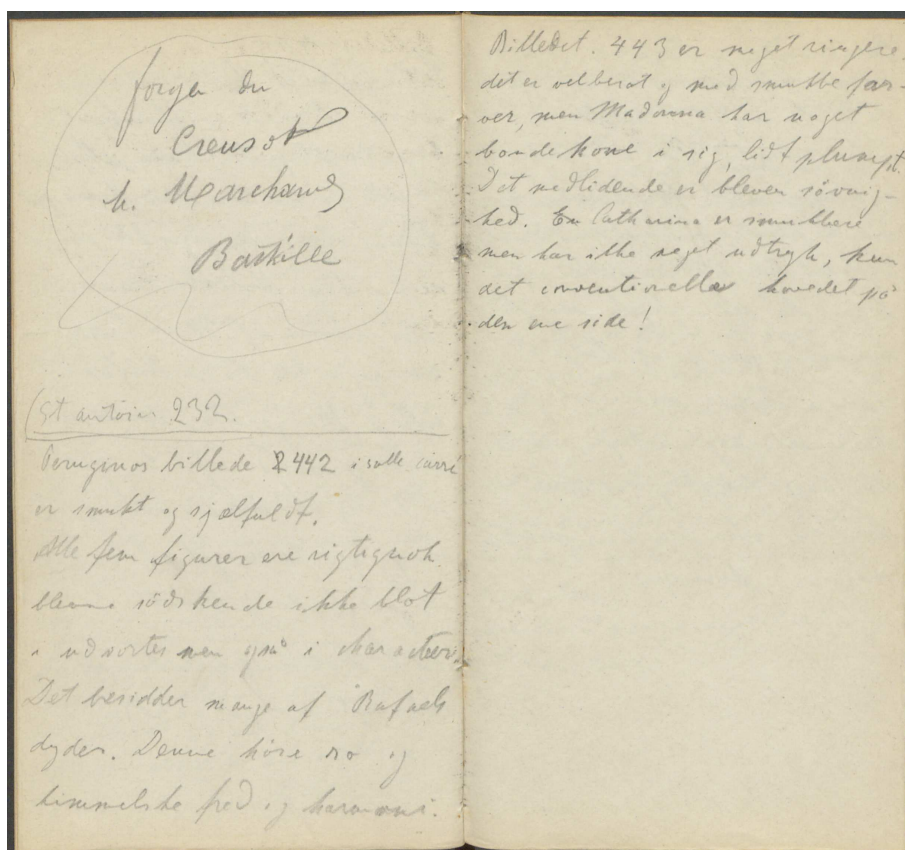 forge du
Creusot
h. Marchand
Bastille
St antoine 232.
Peruginos billede 2442 i salle carré
er smukt og sjælfuldt.
Alle fem figurer ere rigtignok
blevne södskende ikke blot
i udvortes men også i character.
Det besidder mange af Rafaels
dyder. Denne höie ro og
himmelske fred og harmoni.
Billedet. 443 er meget ringere
det er velberot og med smukke far-
ver, men Madonna har noget
bondekone i sig, lidt plumpt.
Det nedlidende er bleven sövnig-
hed. En Catharina er smukkere
men har ikke noget udtryk, kun
det conventionelle hovedet på
den ene side!